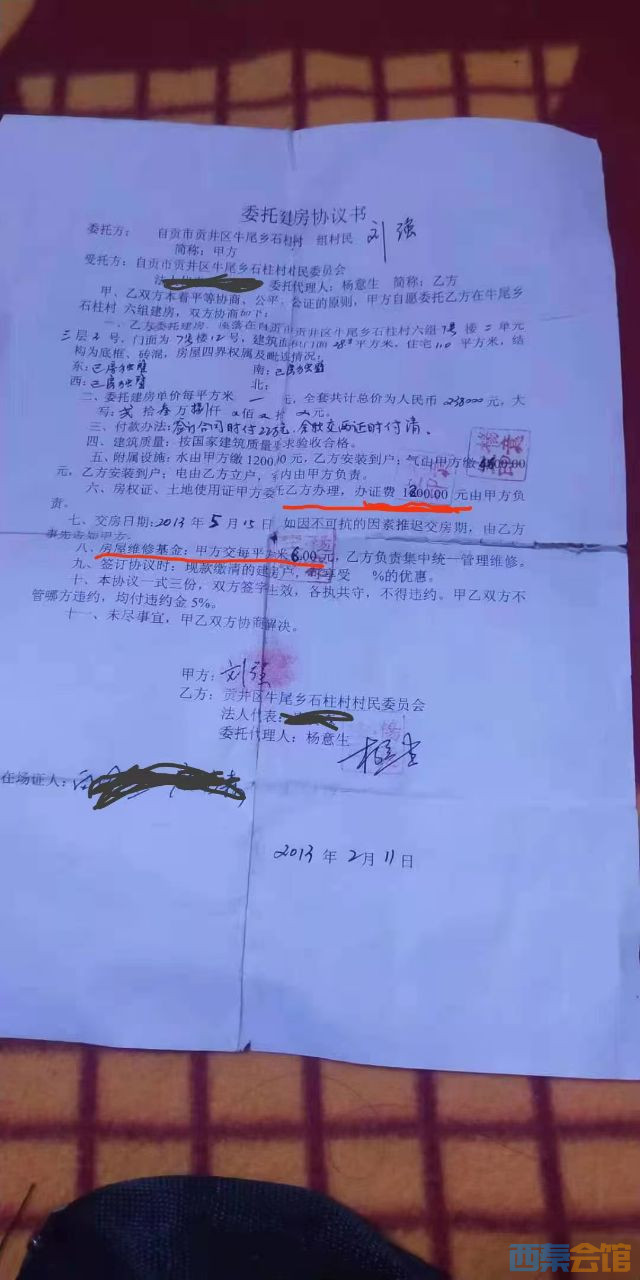 委托建房协议书
委托方： 自贡市贡井区牛尾乡石柱村 组村民 刘强
简称：甲方
受托方：自贡市贡井区牛尾乡石柱村村民委员会
委托代理人：杨意生 简称：乙方
甲、乙双方本着平等协商、公平、公证的原则，甲方自愿委托乙方在牛尾乡
石柱村 六组建房，双方协商如下：
一、乙方委托建房，座落在自贡市贡井区牛尾乡石柱村六组7号楼二单元
三层2号，门面为7号楼12号，建筑面积门面28平方米，住宅110平方米，结
构为底框、砖混，房屋四界权属及毗连情况：
东：己房独壁 南：己房独壁
西：己房独壁 北：
二、委托建房单价每平方米 一 元，全套共计总价为人民币 238000元，大
写：贰拾叁万捌仟 佰 拾 元。
三、付款办法：签订合同时付22万元，余款交两证时付清。
四、建筑质量：按国家建筑质量要求验收合格。
五、附属设施：水由甲方缴1200.00元，乙方安装到户；气由甲方缴 00.00
元，乙方安装到户；电由乙方立户，室内由甲方负责。
六、房权证、土地使用证甲方委托乙方办理，办证费1800.00元由甲方负
责。
七、交房日期：2013年5月15日 如因不可抗的因素推迟交房期，由乙方
事先告知甲方。
八、房屋维修基金：甲方交每平方米6.00元，乙方负责集中统一管理维修。
九、签订协议时：现款缴清的建房户，可享受 %的优惠。
十、本协议一式三份，双方签字生效，各执共守，不得违约。甲乙双方不
管哪方违约，均付违约金5%。
十一、未尽事宜，甲乙双方协商解决。
甲方：刘强
乙方：贡井区牛尾乡石柱村村民委员会
法人代表：
委托代理人：杨意生
在场证人：
2013年2月11日
西秦会馆